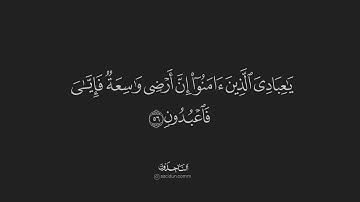 يَـٰعِبَادِىَ ٱلَّذِينَ ءَامَنُوٓا۟ إِنَّ أَرْضِى وَٰسِعَةٌ فَإِيَّـٰىَ
فَٱعْبُدُونِ ٥٦